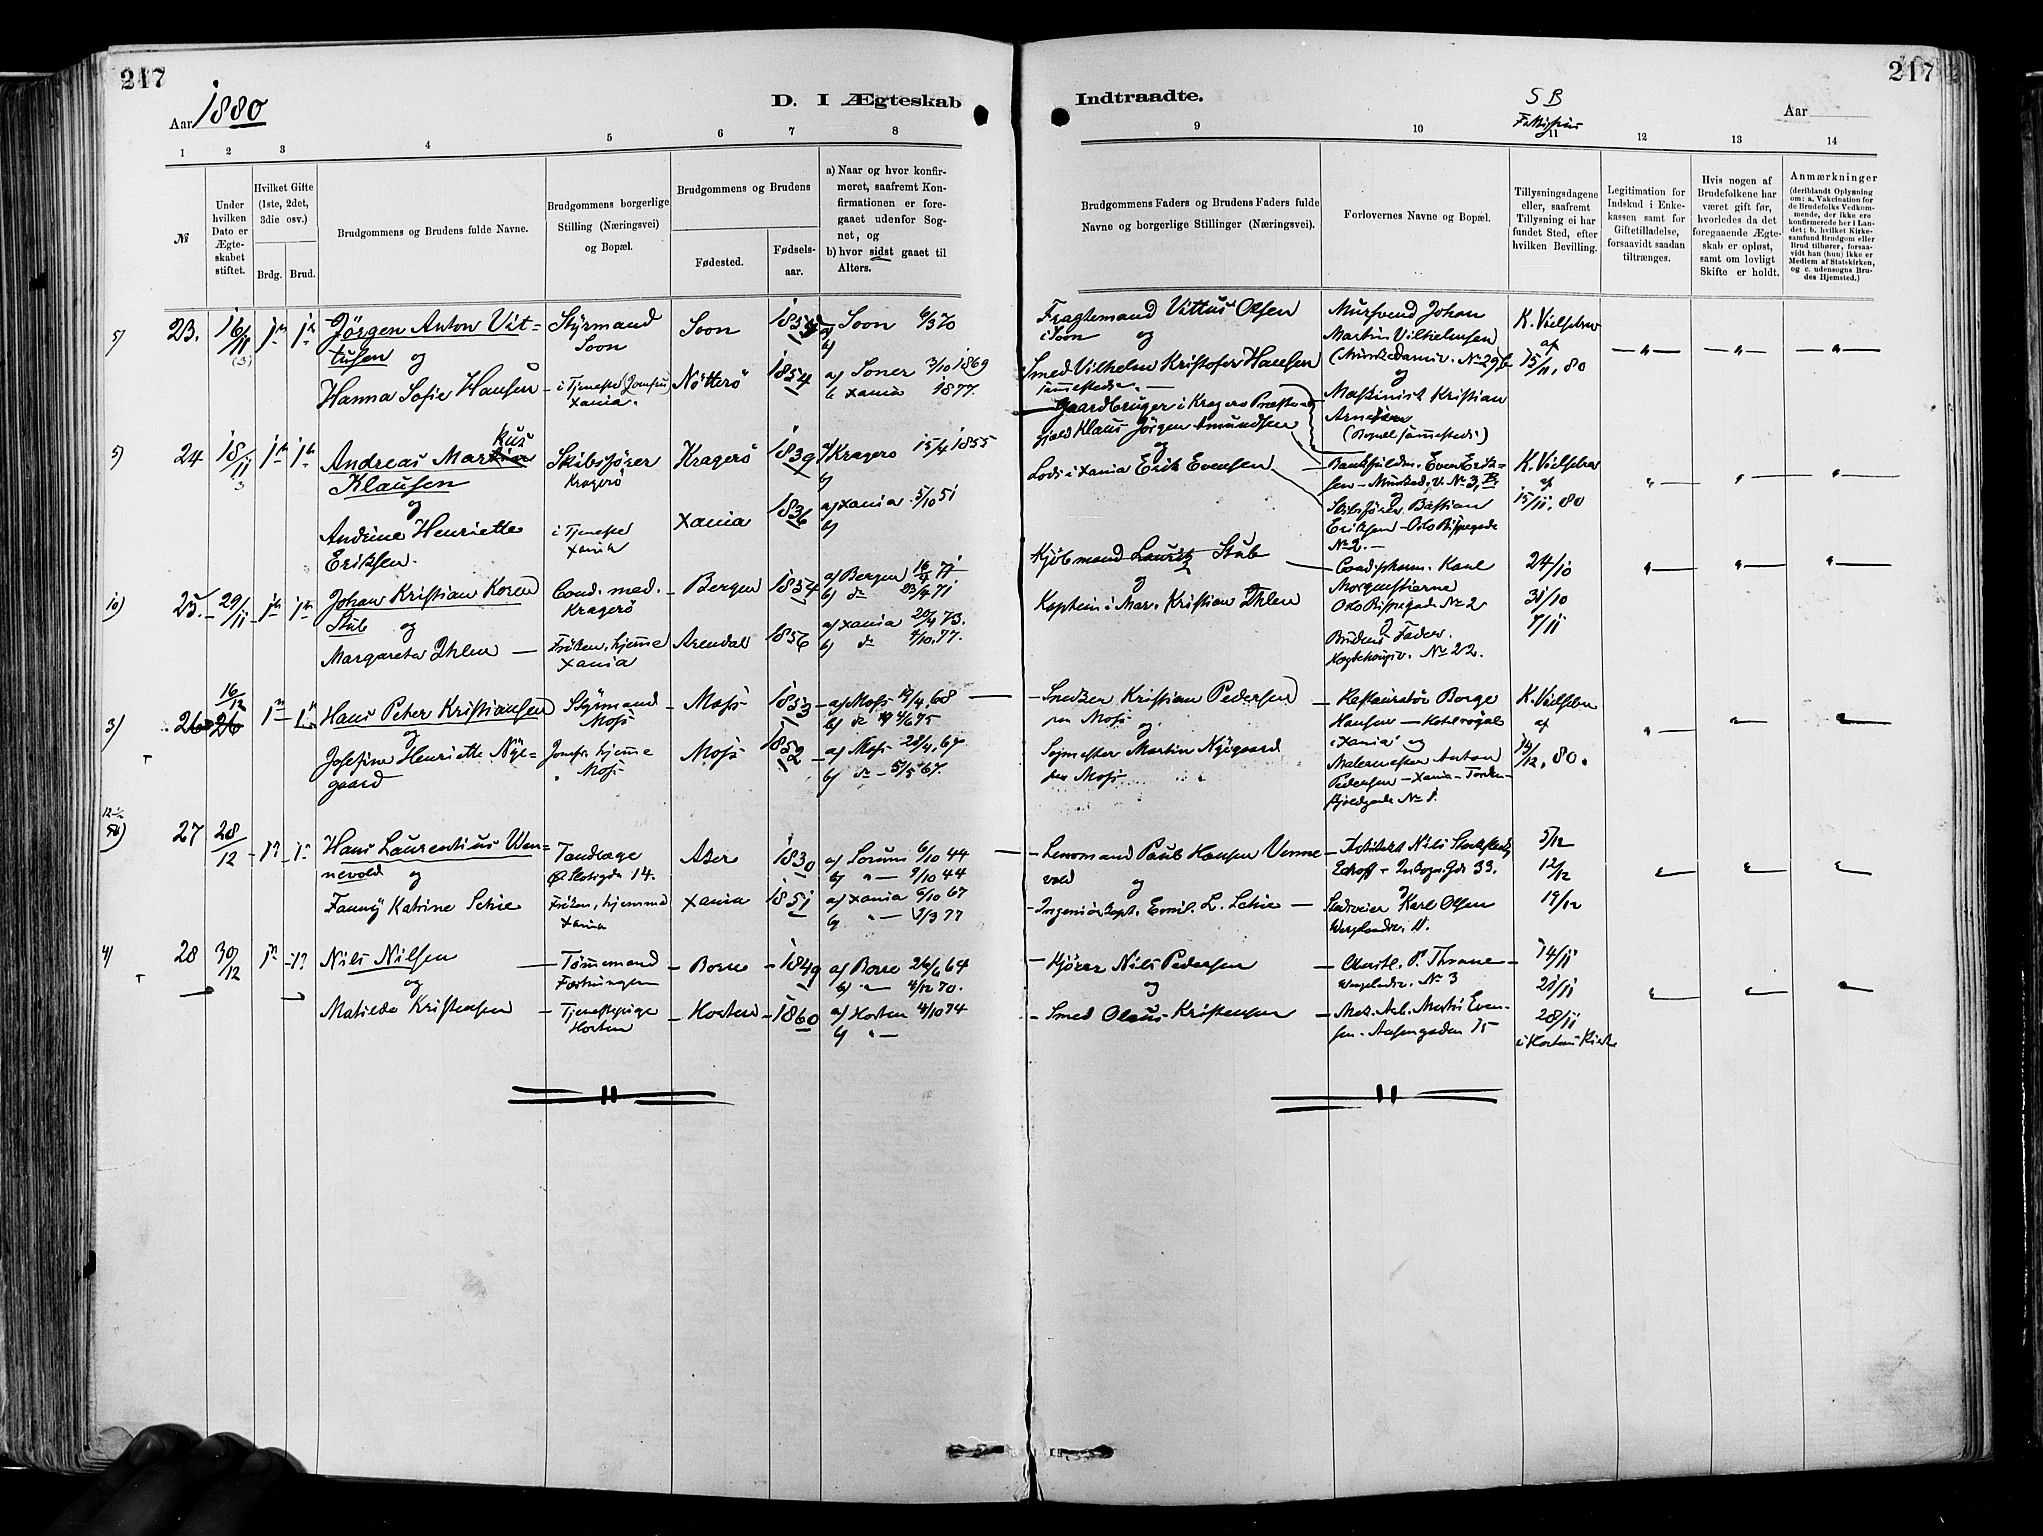 217
217
Aar 1880
D. I Ægteskab
Indtraadte.
S B
Aar
1 2 3 4 5 6 7 8
9 10 11 12 13 14
№
Under hvilken Dato er Ægteskabet stiftet.
Hvilket Gifte (1ste, 2det, 3die osv.)
Brdg. Brud.
Brudgommens og Brudens fulde Navne.
Brudgommens borgerlige Stilling (Næringsvei) og Bopæl.
Brudgommens og Brudens
Fødested.
Fødselsaar.
a) Naar og hvor konfirmeret, saafremt Konfirmationen er foregaaet udenfor Sognet, og
b) hvor sidst gaaet til Alters.
Brudgommens Faders og Brudens Faders fulde Navne og borgerlige Stillinger (Næringsvei).
Forlovernes Navne og Bopæl.
Tillysningsdagene eller, saafremt Tillysning ei har fundet Sted, efter hvilken Bevilling.
Legitimation for Indskud i Enkekassen samt for Giftetilladelse, forsaavidt saadan tiltrænges.
Hvis nogen af Brudefolkene har været gift før, hvorledes da det foregaaende Ægteskab er opløst, samt om lovligt Skifte er holdt.
Anmærkninger
(deriblandt Oplysning om: a. Vakcination for de Brudefolks Vedkommende, der ikke ere konfirmerede her i Landet; b. hvilket Kirkesamfund Brudgom eller Brud tilhører, forsaavidt han (hun) ikke er Medlem af Statskirken, og c. udensogns Brudes Hjemsted.)
5) 23. 16/11 Jørgen Anton Vittusen og Styrmand Soon Soon 1854 a) Soon 6/5 70
Fragtemand Vittus Olsen i Soon og
Mursvend Johan Martin Vilhelmsen
K. Vielsbrev af 15/11. 80
Hanna Sofie Hansen i Tjeneste (Jomfru) Xania. Nötterö 1854 a) Soner 3/10 1869 b) Xania 1877.
Smed Vilhelm Kristofer Hansen sammesteds.
og Maskinist Kristian Arnesen (Bopæl sammesteds)
5) 24 18/11 Andreas Markus Klausen og Skibsfører Kragerö Kragerö 1839 a) Kragerö 15/4 1855 b)
Gaardbruger i Kragerø Præstegjæld Klaus Jörgen Amundsen og
K. Vielsbrev af 15/11. 80
Andrine Henriette Eriksen. i Tjeneste Xania Xania 1836 a) Xania 5/10 51 b)
Lods i Xania Erik Evensen
Skibsfører Bastian Eriksen - Oslo Bispegade № 2.
10) 25. 29/11 Johan Kristian Koren Stub og Cand. med. Kragerö Bergen 1854 a) Bergen 16/4 71
Kjöbmand Lauritz Stub og
Cand. pharm. Karl Morgenstierne Oslo Bispegade № 2
24/10
31/10
7/11
Margareta Ihlen Fröken, hjemme Xania Arendal 1856 a) Xania 20/4 73. b) do 7/10. 77.
Kaptein i Mar. Kristian Ihlen
Brudens Fader. № 22.
3) 26 16/12 Hans Peter Kristiansen og Styrmand Moss Moss 1853 a) Moss 19/4, 68
Snedker Kristian Pedersen paa Moss og
Restauratør Borge Hansen - Hotel royal i Xania og
K. Vielsbrev af 14/12. 80.
Josefine Henriette Nygaard Jomfr. hjemme Moss Moss 1852 a) Moss 28/4, 67 b) do 5/5 67.
Martin Nygaard paa Moss
Malermester Anton Pedersen - Xania - Tordenskjoldsgade № 1.
27 28/12 Hans Laurentius Wennevold og Tandlæge Ø. Slotsgde 14. Asker 1830 a) Sorum 6/10 44 b) " 9/10 44
Lensmand Paul Hansen Vennevold og
Arkitekt Nils Stockfleth Eckhoff - Inkogn. Gd. 33.
5/12
12/12
19/12
Fanny Katrine Schie Fröken, hjemme Xania Xania 1851 a) Xania 6/10 67 b) " 3/3 77
Ingeniörkapt. Emil L. Schie
Karl Olsen
4) 28 30/12 Nils Nilsen og Tömmermand Fæstningen Borre 1849 a) Borre 26/6 64 b) " 4/12 70.
Nils Pedersen og
P. Thrane № 3
14/11
21/11
28/11 i Hortens Kirke
Matilde Kristensen Tjenestepige Horten Horten 1860 a) Horten 4/10 74 b) "
Smed Olaus Kristensen
Aasengaden 15